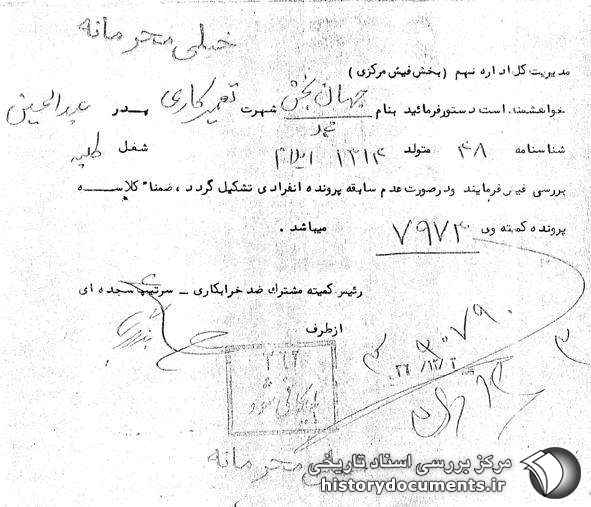 خیلی محرمانه
مدیریت کل اداره نهم (بخش فیش مرکزی)
خواهشمند است دستور فرمائید بنام جهان بخش شهرت تعمیرکاری پدر عبدالحسین
محمد
شناسنامه ۴۸ متولد ۱۳۱۴ ایلام شغل طلبه
بررسی فیش فرمایند ودرصورت عدم سابقه پرونده انفرادی تشکیل گردد، ضمناً کلاسه
پرونده کمیته وی ۷۹۷۳ میباشد.
رئیس کمیته مشترک ضد خرابکاری ـ سرتیپ سجده ای
ازطرف
بایگانی شود
محرمانه
مرکز بررسی اسناد تاریخی
historydocuments.ir